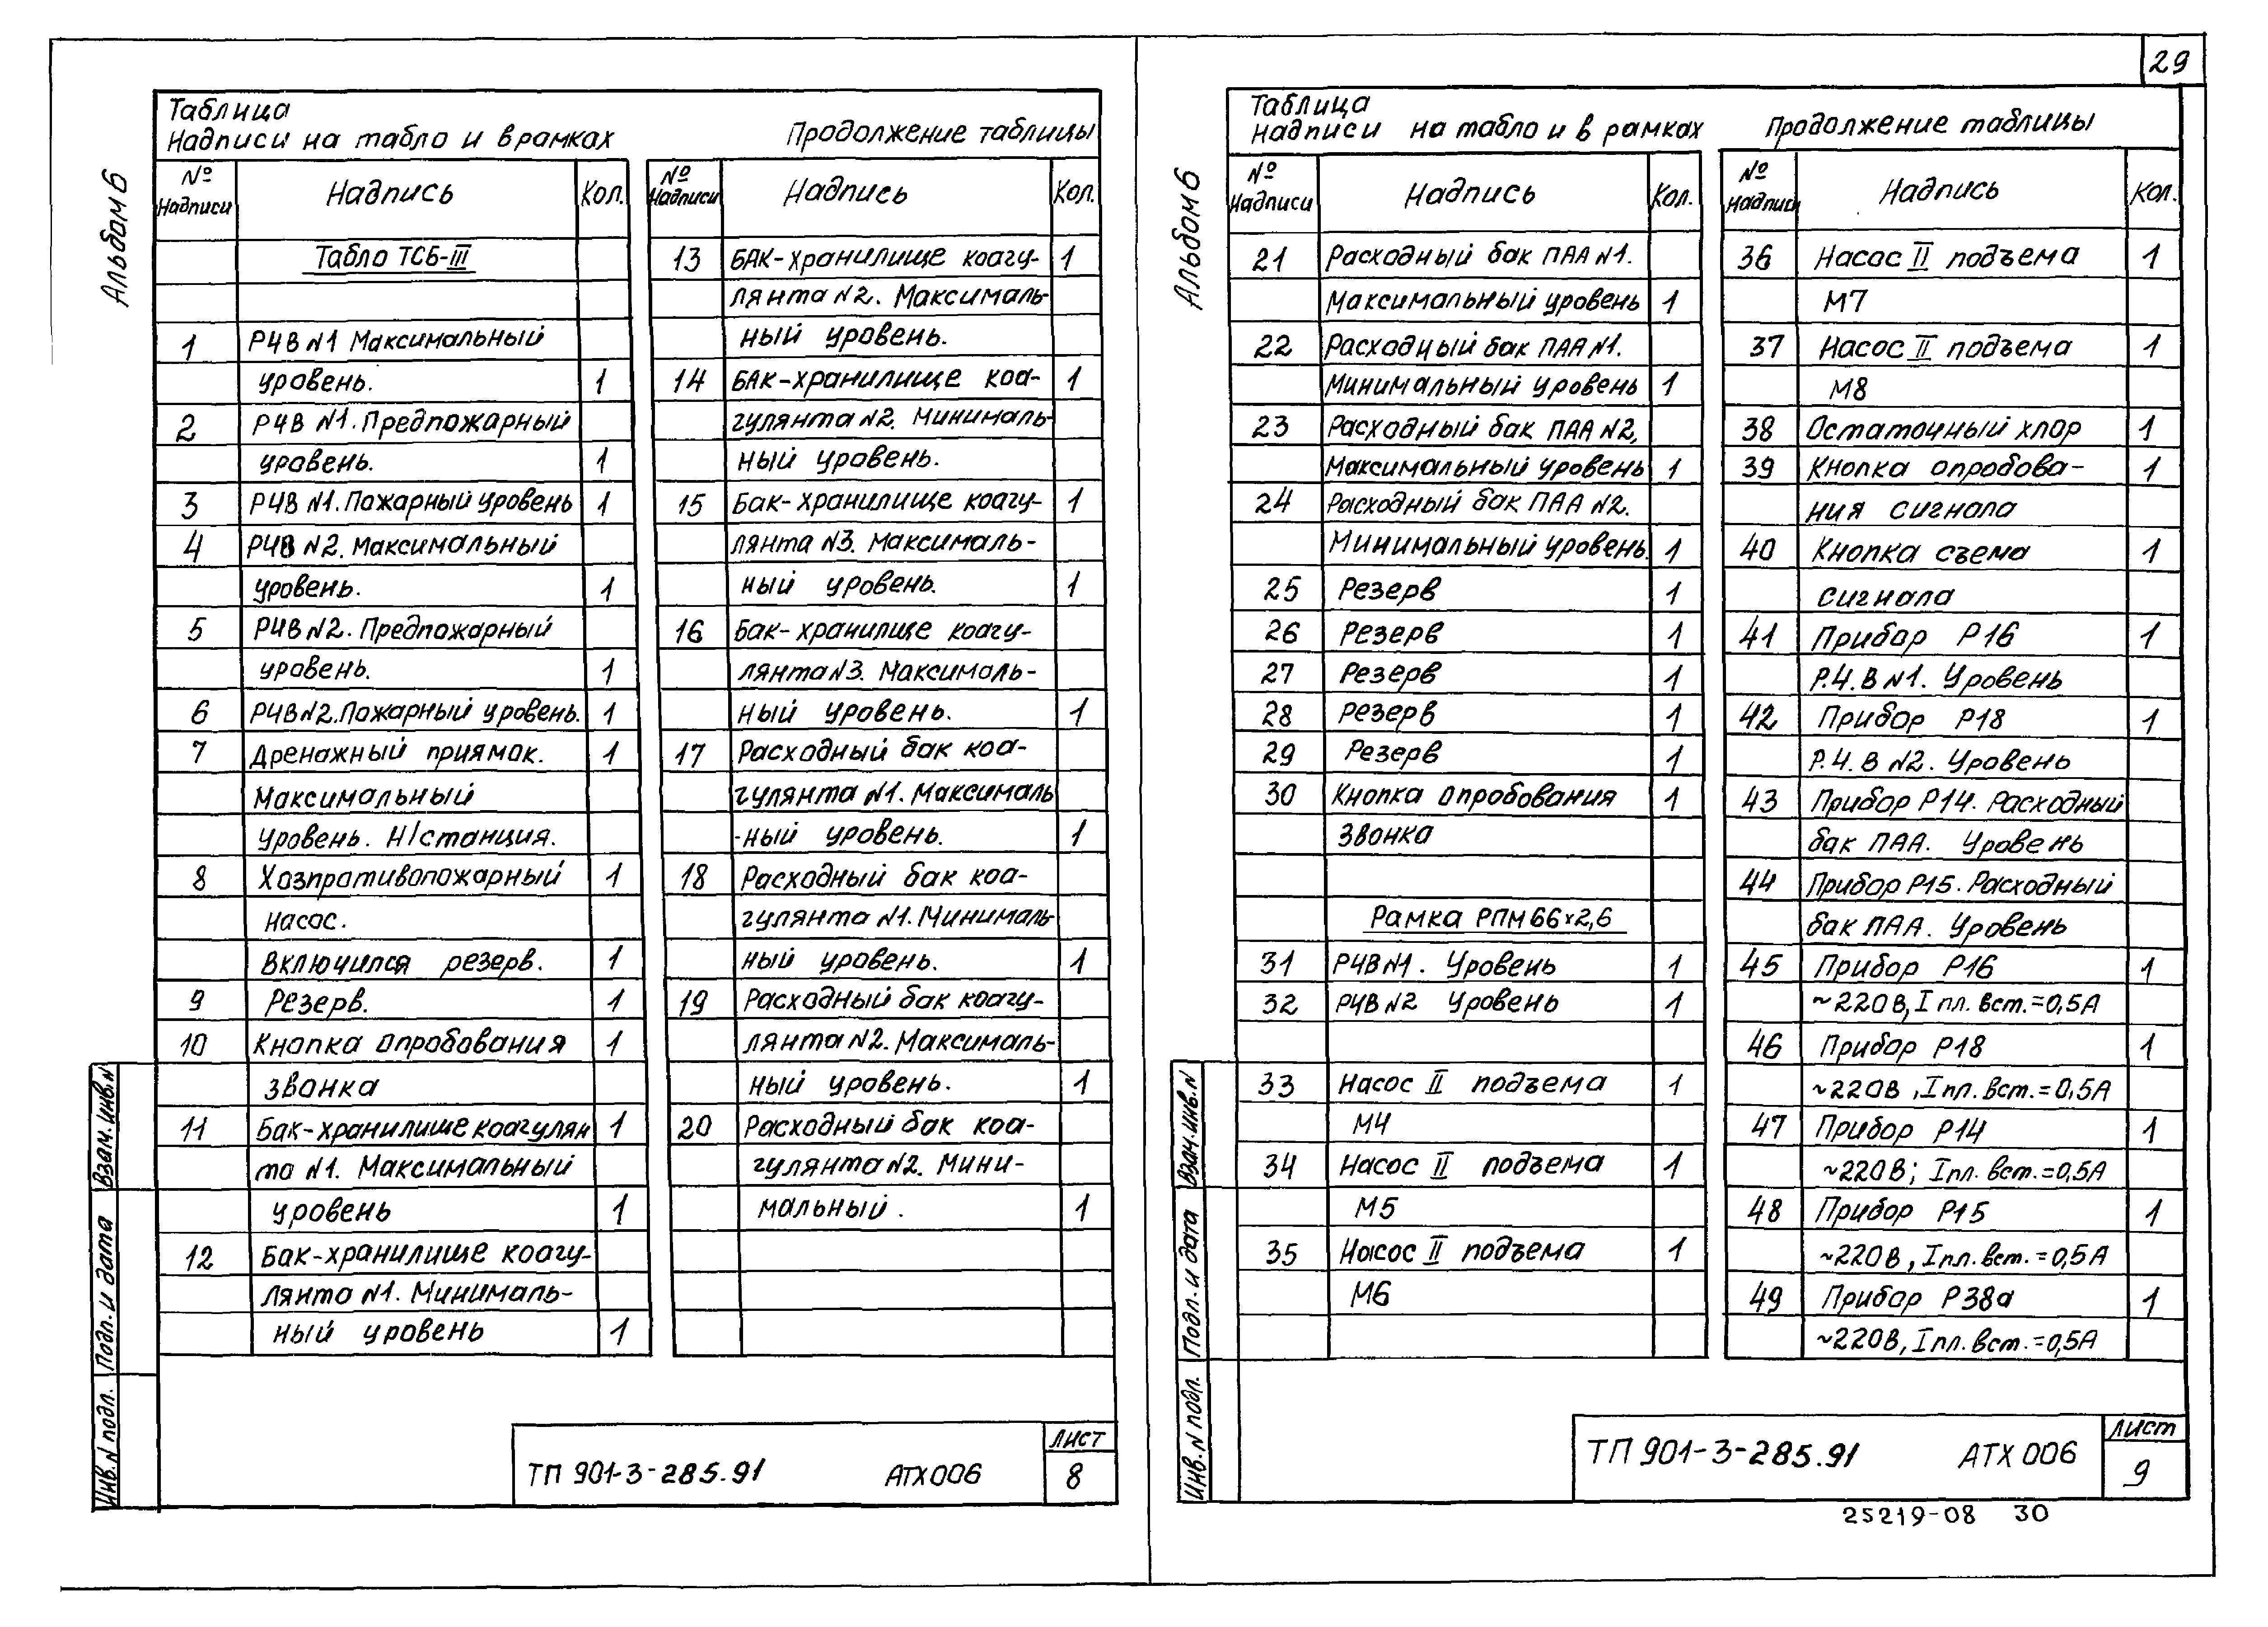 29
Альбом 6
Таблица
Надписи на табло и в рамках Продолжение таблицы
№ Надписи Надпись Кол.
Табло ТСБ-III
1 РЧВ N1 Максимальный
уровень. 1
2 РЧВ N1. Предпожарный
уровень. 1
3 РЧВ N1. Пожарный уровень 1
4 РЧВ N2. Максимальный
уровень. 1
5 РЧВ N2. Предпожарный
уровень. 1
6 РЧВ N2. Пожарный уровень. 1
7 Дренажный приямок. 1
Максимальный
уровень. Н/станция.
8 Хозпротивопожарный 1
насос.
Включился резерв. 1
9 Резерв. 1
10 Кнопка опробования 1
звонка
11 Бак-хранилище коагулян 1
та N1. Максимальный
уровень 1
12 Бак-хранилище коагу-
лянта N1. Минималь-
ный уровень 1
№ Надписи Надпись Кол.
13 БАК-хранилище коагу- 1
лянта N2. Максималь-
ный уровень.
14 БАК-хранилище коа- 1
гулянта N2. Минималь-
ный уровень.
15 Бак-хранилище коагу- 1
лянта N3. Максималь-
ный уровень. 1
16 Бак-хранилище коагу-
лянта N3. Максималь-
ный уровень. 1
17 Расходный бак коа-
гулянта N1. Максималь
-ный уровень. 1
18 Расходный бак коа-
гулянта N1. Минималь
ный уровень. 1
19 Расходный бак коагу-
лянта N2. Максималь-
ный уровень. 1
20 Расходный бак коа-
гулянта N2. Мини-
мальный. 1
Взам. инв. N
Подп. и дата
Инв. N подл.
ТП 901-3-285.91 АТХ 006
Лист
8
Альбом 6
Таблица
Надписи на табло и в рамках Продолжение таблицы
№ Надписи Надпись Кол.
21 Расходный бак ПАА N1.
Максимальный уровень 1
22 Расходный бак ПАА N1.
Минимальный уровень 1
23 Расходный бак ПАА N2,
Максимальный уровень 1
24 Расходный бак ПАА N2.
Минимальный уровень. 1
25 Резерв 1
26 Резерв 1
27 Резерв 1
28 Резерв 1
29 Резерв 1
30 Кнопка опробования 1
звонка
Рамка РПМ 66×2,6
31 РЧВ N1. Уровень 1
32 РЧВ N2 Уровень 1
33 Насос II подъема 1
М4
34 Насос II подъема 1
М5
35 Насос II подъема 1
М6
№ Надписи Надпись Кол.
36 Насос II подъема 1
М7
37 Насос II подъема 1
М8
38 Остаточный хлор 1
39 Кнопка опробова- 1
ния сигнала
40 Кнопка съема 1
сигнала
41 Прибор Р16 1
Р.Ч.В N1. Уровень
42 Прибор Р18 1
Р.Ч.В N2. Уровень
43 Прибор Р14. Расходный
бак ПАА. Уровень
44 Прибор Р15. Расходный
бак ПАА. Уровень
45 Прибор Р16 1
~220В, I пл. вст.=0,5А
46 Прибор Р18 1
~220В, I пл. вст.=0,5А
47 Прибор Р14 1
~220В; I пл. вст.=0,5А
48 Прибор Р15 1
~220В, I пл. вст.=0,5А
49 Прибор Р38а 1
~220В, I пл. вст.=0,5А
Взам. инв. N
Подп. и дата
Инв. N подл.
ТП 901-3-285.91 АТХ 006
Лист
9
25219-08 30